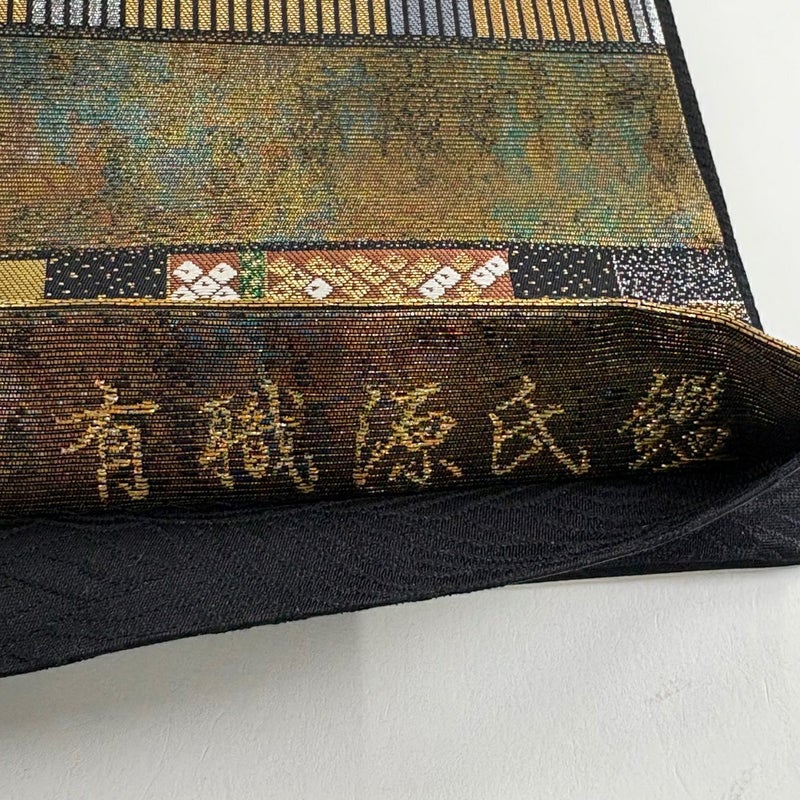 有職源氏